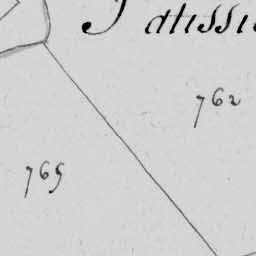 Patissie
762
765